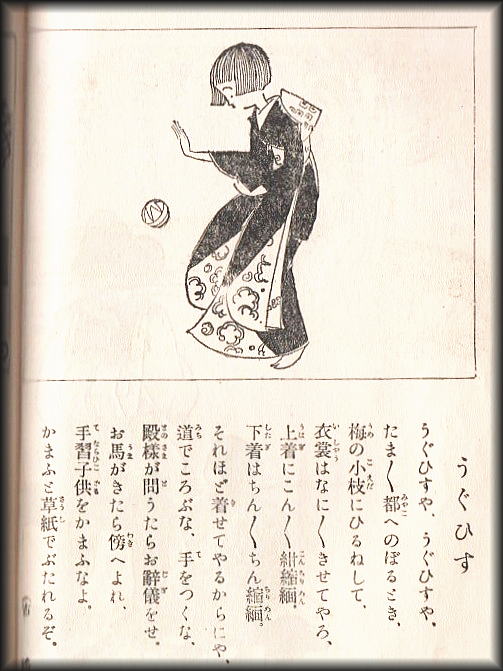 うぐひす
うぐひすや、うぐひすや、
たま〳〵都へのぼるとき、
梅の小枝にひるねして、
衣裳はなに〳〵きせてやろ、
上着にこん〳〵紺縮緬。
下着はちん〳〵ちん縮緬。
それほど着せてやるからにや、
道でころぶな、手をつくな、
殿様が問うたらお辭儀をせ。
お馬がきたら傍へよれ、
手習子供をかまふなよ。
かまふと草紙でぶたれるぞ。